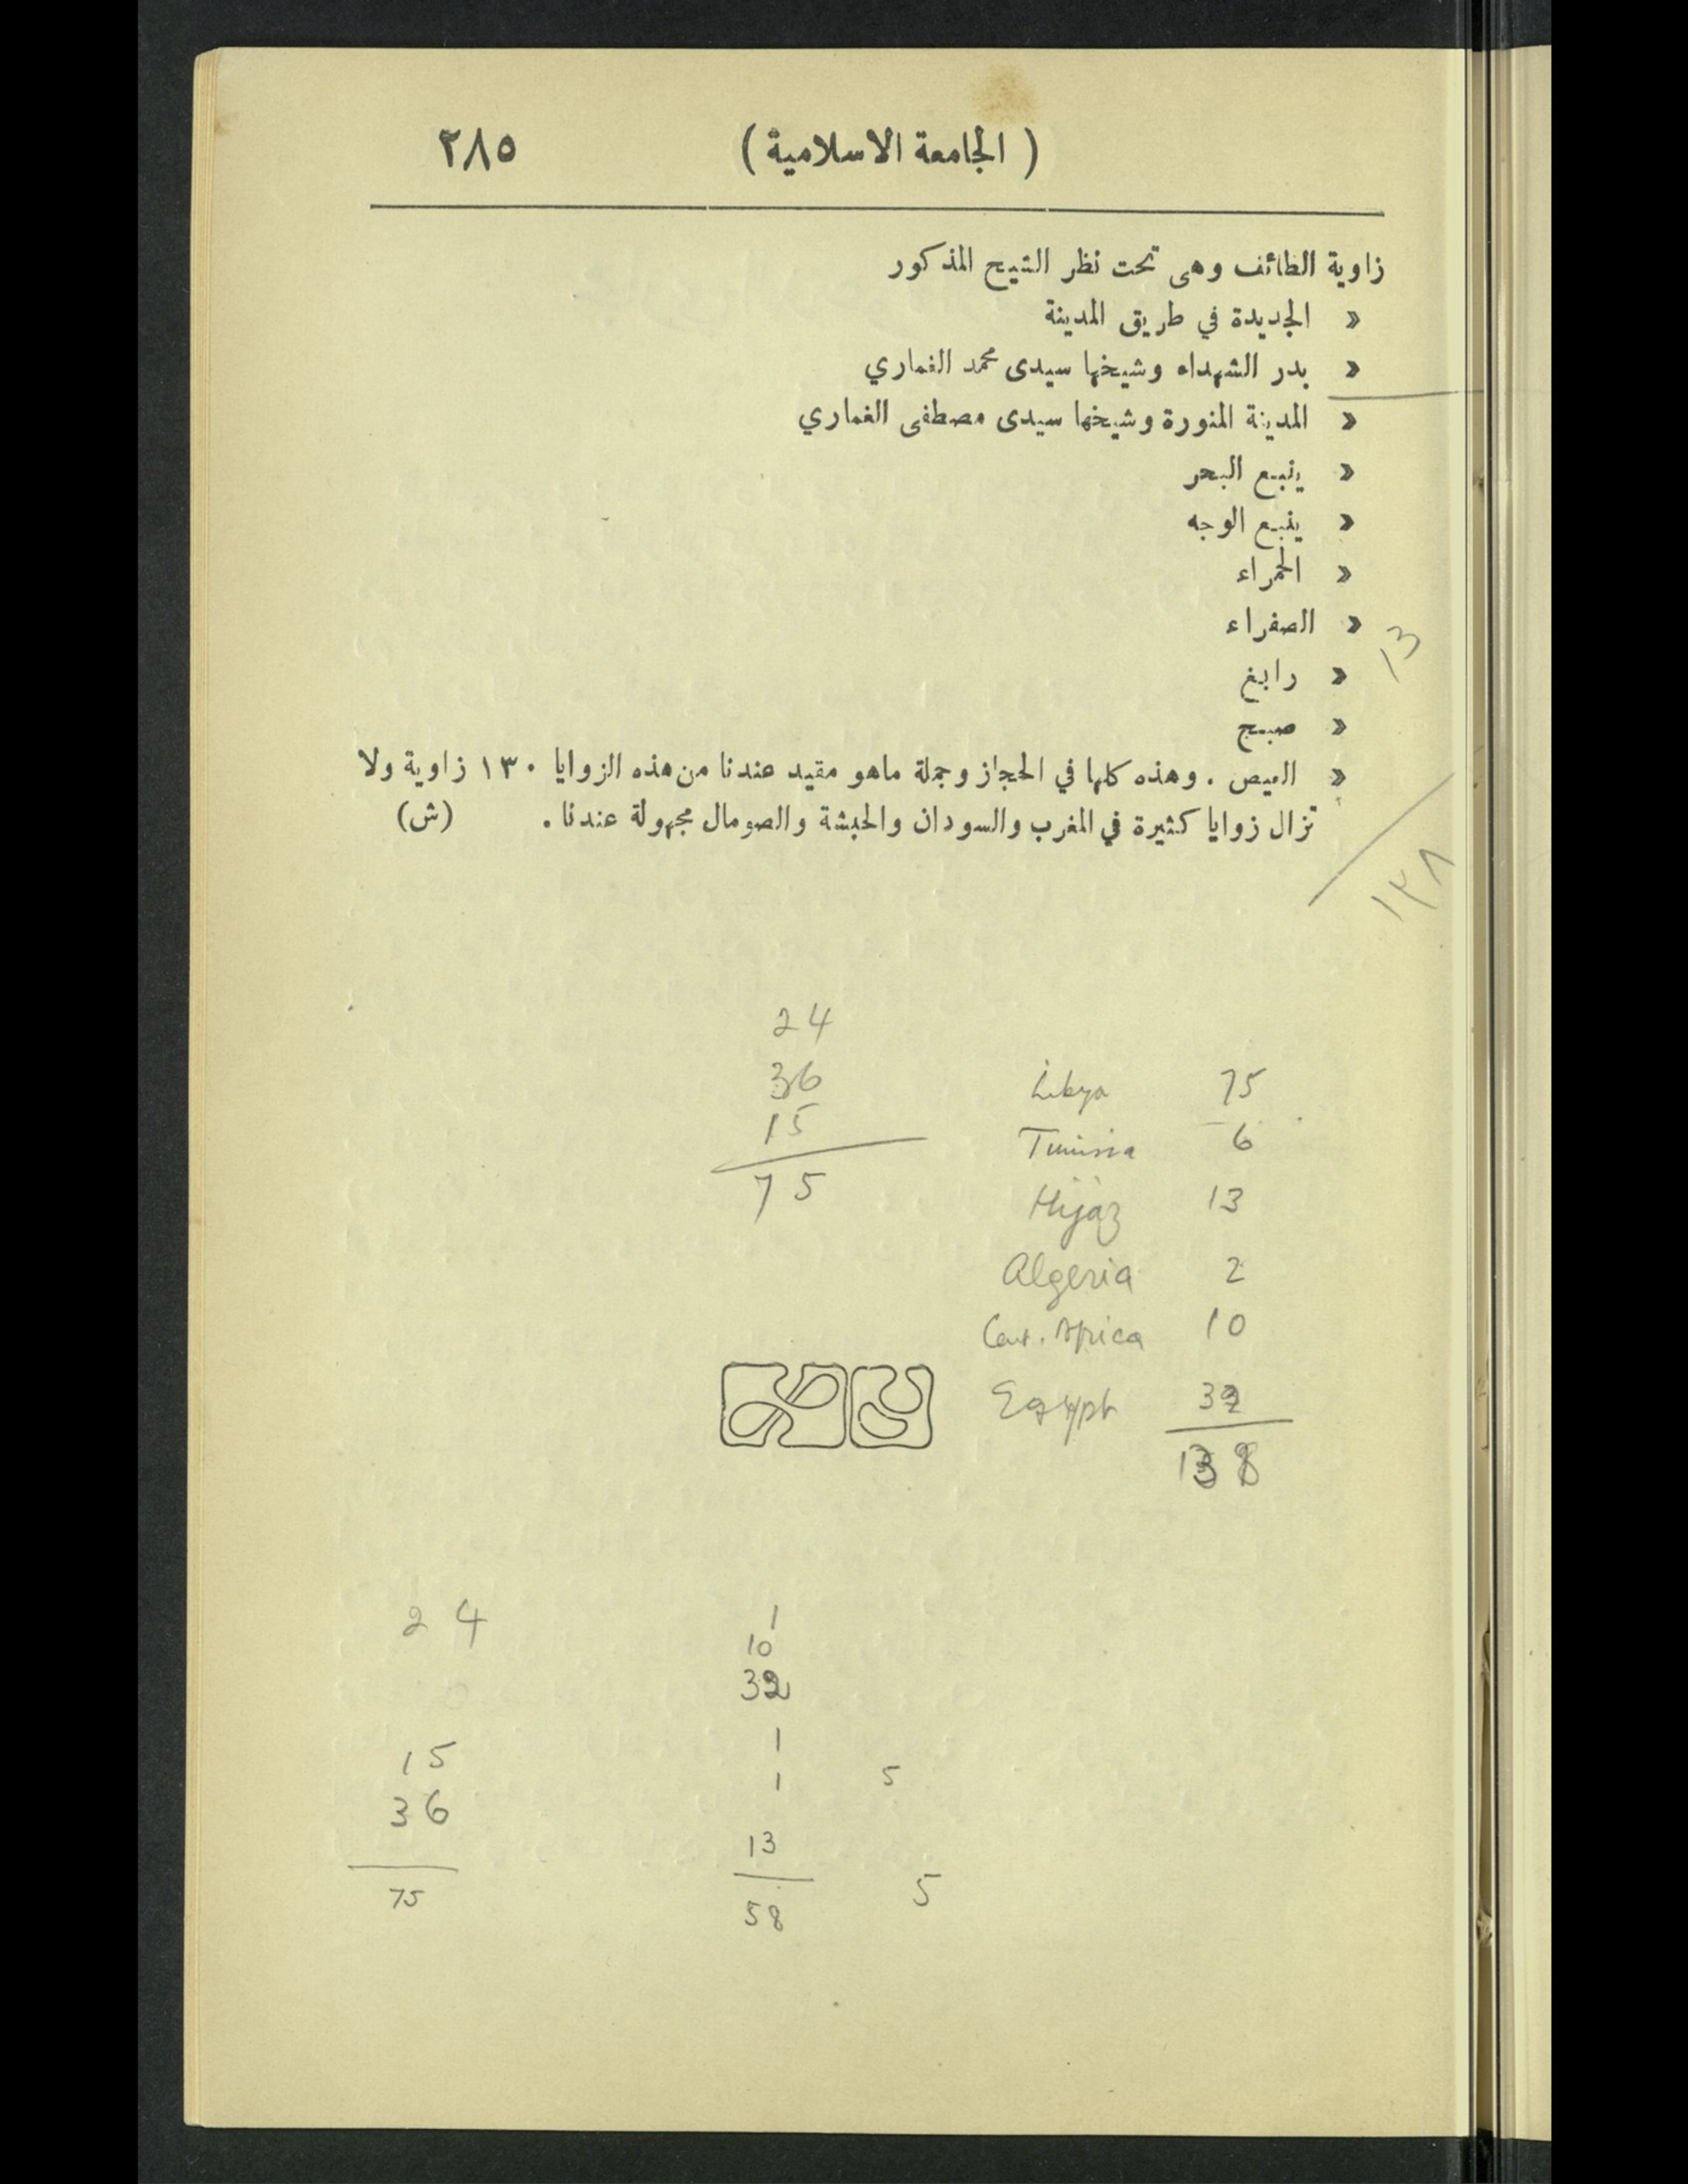 ٢٨٥ ( الجامعة الاسلامية )
زاوية الطائف وهى تحت نظر الشيخ المذكور
» الجديدة في طريق المدينة
» بدر الشهداء وشيخها سيدى محمد الغماري
» المدينة المنورة وشيخها سيدى مصطفى الغماري
» ينبع البحر
» ينبع الوجه
» الحمراء
» الصفراء
13
» رابغ
» صبح
» العيص . وهذه كلها في الحجاز وجملة ماهو مقيد عندنا من هذه الزوايا ١٣٠ زاوية ولا
تزال زوايا كثيرة في المغرب والسودان والحبشة والصومال مجهولة عندنا . (ش)
١٣٨
24
36
15
75
Libya 75
Tunisia 6
Hijaz 13
Algeria 2
Cent. Africa 10
Egypt 32
138
24
15
36
75
1
10
32
1
1 5
13
58 5